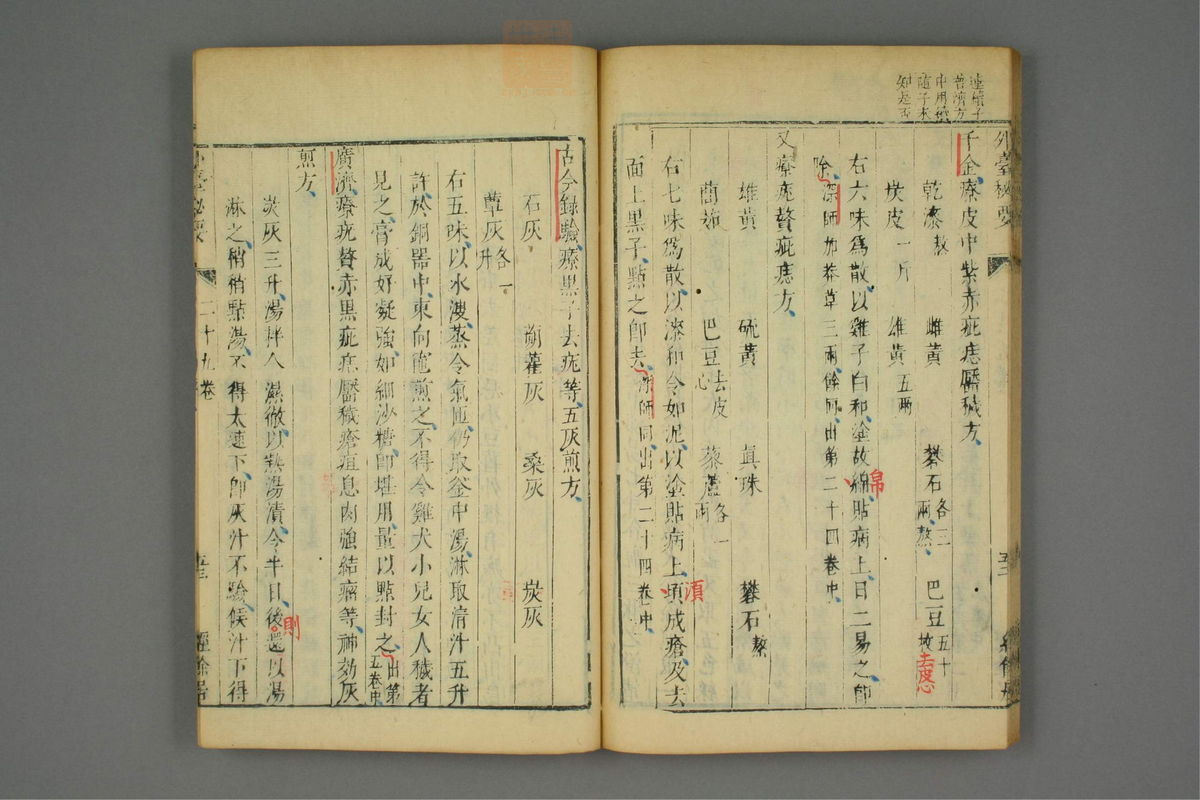 連續子
普濟方
中用續
隨子未
知是否
外臺秘要
千金療皮中紫赤疵痣靨穢方
乾漆熬 雌黃 礬石各三兩熬 巴豆五十枚去皮心
炭皮一斤 雄黃五兩
右六味爲散以雞子白和塗故綿貼病上日二易之即
帛
除深師加莽草三兩餘同出第二十四卷中
又療疣贅疵痣方
雄黃 硫黃 真珠 礬石熬
䕡茹 巴豆去皮心 藜蘆各一兩
右七味爲散以漆和令如泥以塗貼病上頃成瘡及去
須
面上黑子點之即去深師同出第二十四卷中
古今錄驗療黑子去疣等五灰煎方
石灰 蒴藋灰 桑灰 炭灰
蕈灰各一升
右五味以水溲蒸令氣匝仍取釜中湯淋取清汁五升
許於銅器中東向竈煎之不得令雞犬小兒女人穢者
見之膏成好凝強如細沙糖即堪用量以點封之出第五卷中
廣濟療疣贅赤黑疵痣靨穢瘡疽息肉強結瘤等神効灰
煎方
炭灰三升湯拌令濕徹以熱湯漬令半日後還以湯
則
淋之稍稍點湯不得太速下即灰汁不驗候汁下得
二十九卷
五三
經餘居